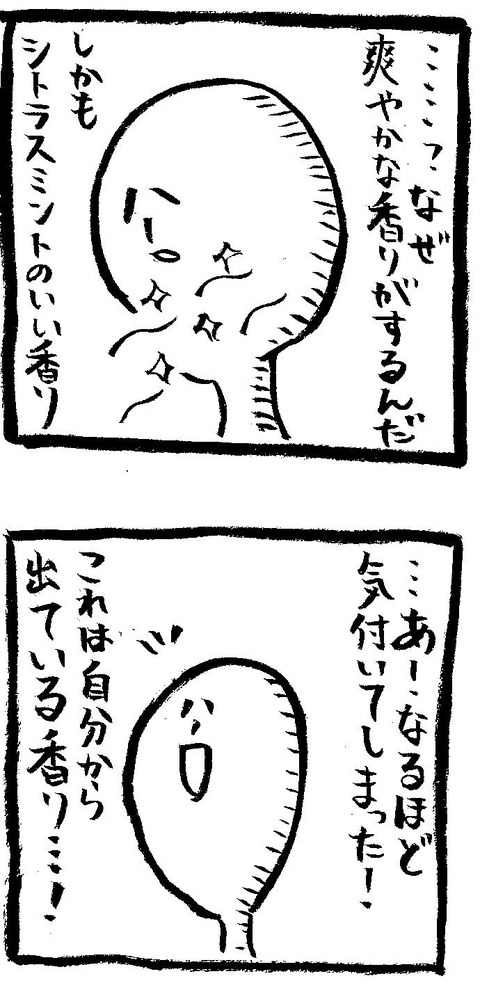 ……っ、なぜ
爽やかな香りがするんだ
しかも
シトラスミントのいい香り
…あー、なるほど
気付いてしまった!
これは自分から
出ている香り…!